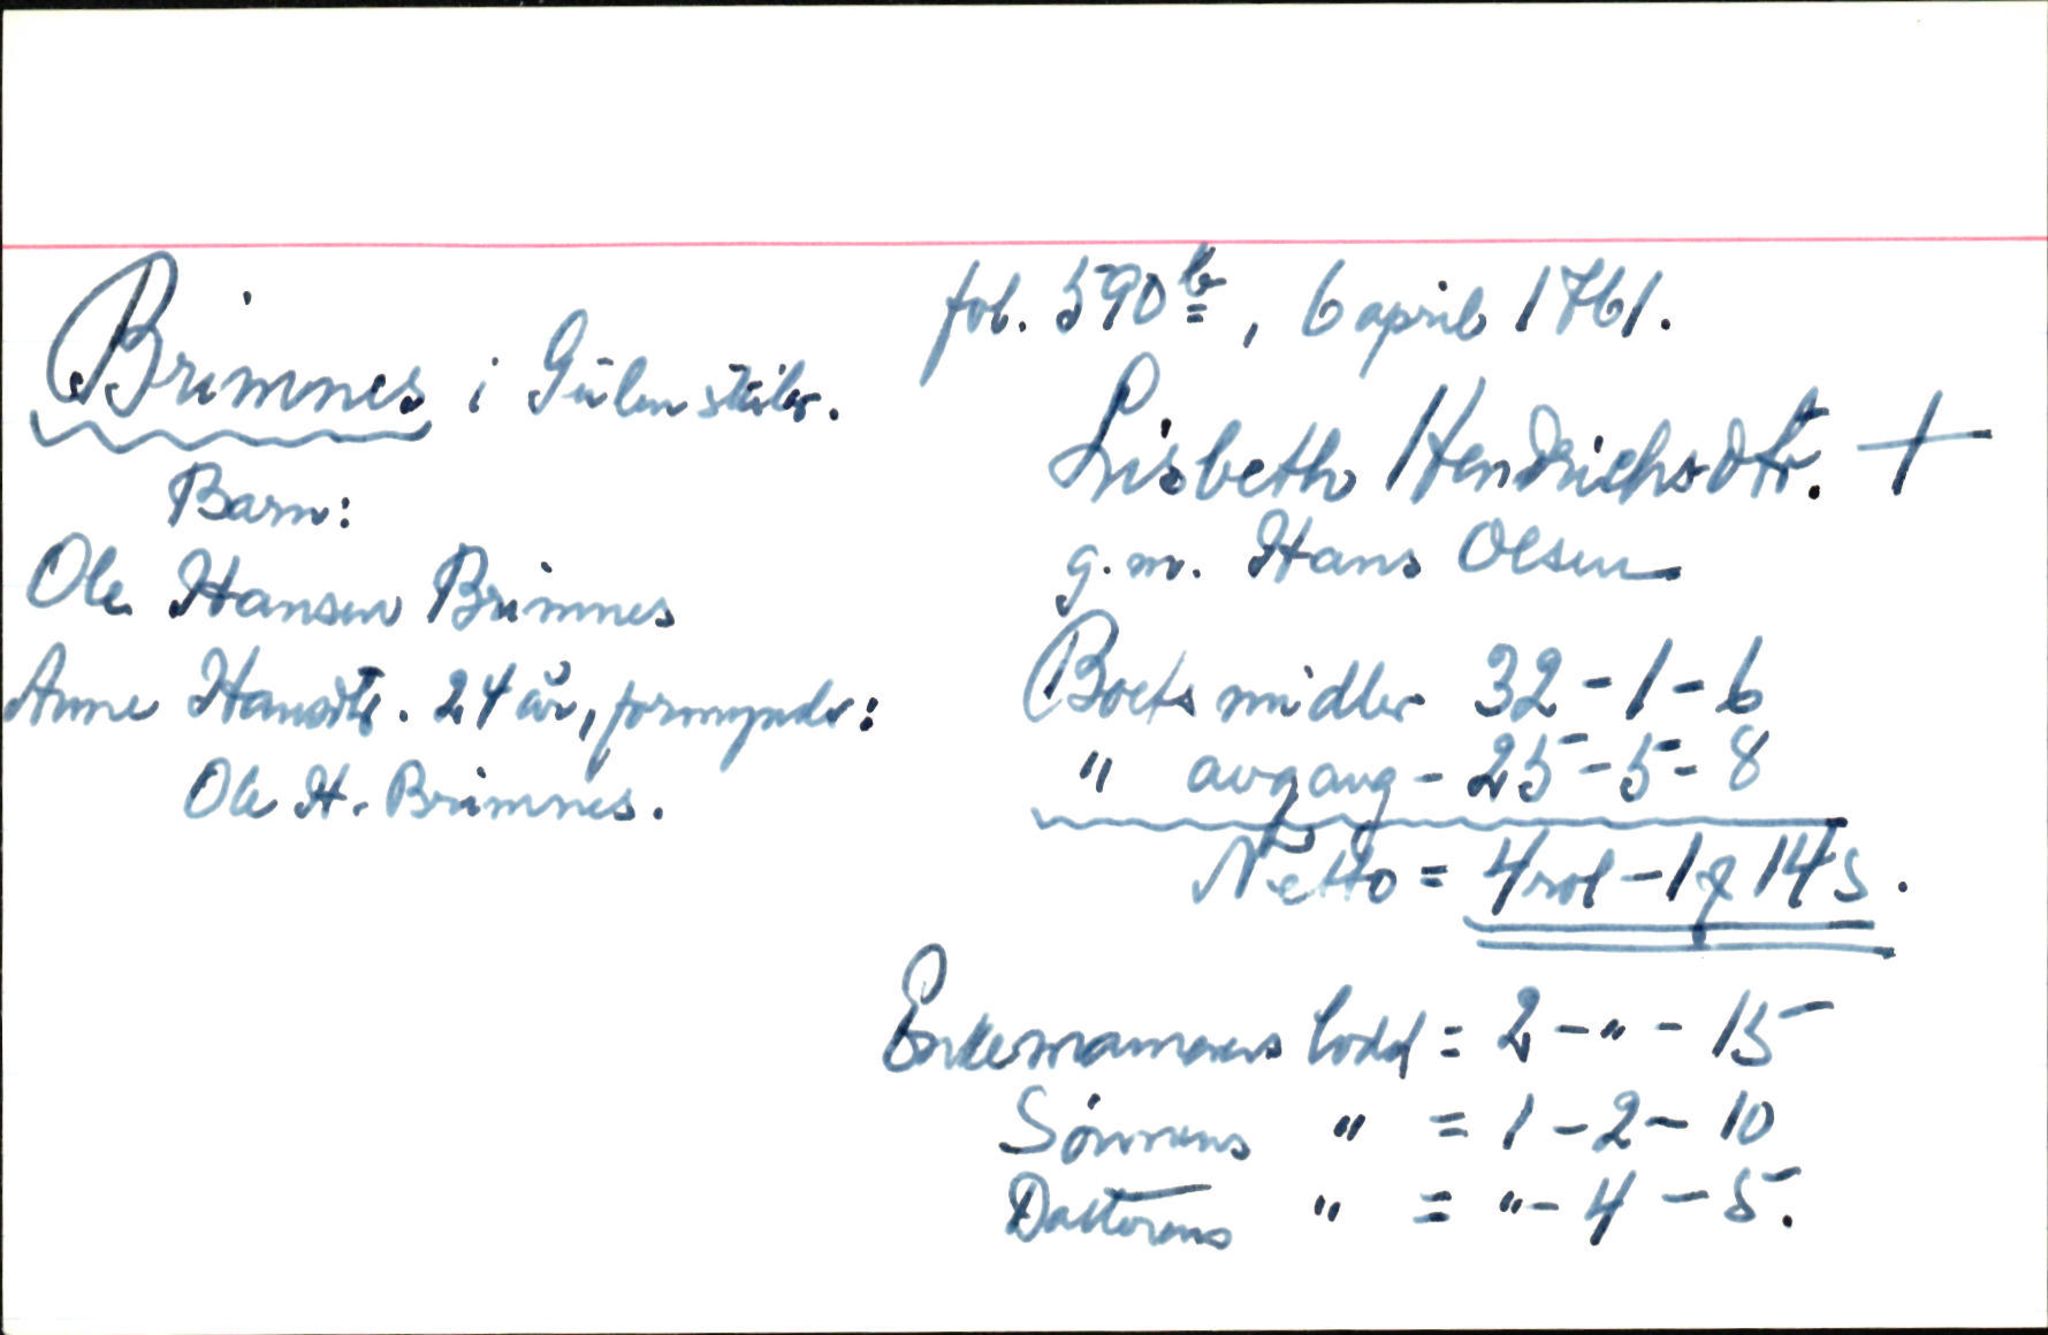 fol. 590b, 6 april 1761.
Brimnes i Gulen skibr.
Lisbeth Hendrichsdtr. +
g.m. Hans Olsen
Barn:
Ole Hansen Brimnes
Anne Hansdtr. 24 år, formynder:
Ole H. Brimnes.
Boets midler 32-1-6
" avgang - 25-5-8
Netto = 4 rdl - 1 ƒ 14 s.
Enkemannens lodd = 2-"-15
Sønnens " = 1-2-10
Dattrens " = "-4-5.